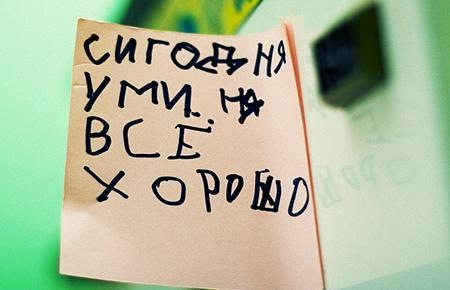 СИГОДНЯ
УМИ. НЯ
ВСЁ
ХОРОШО